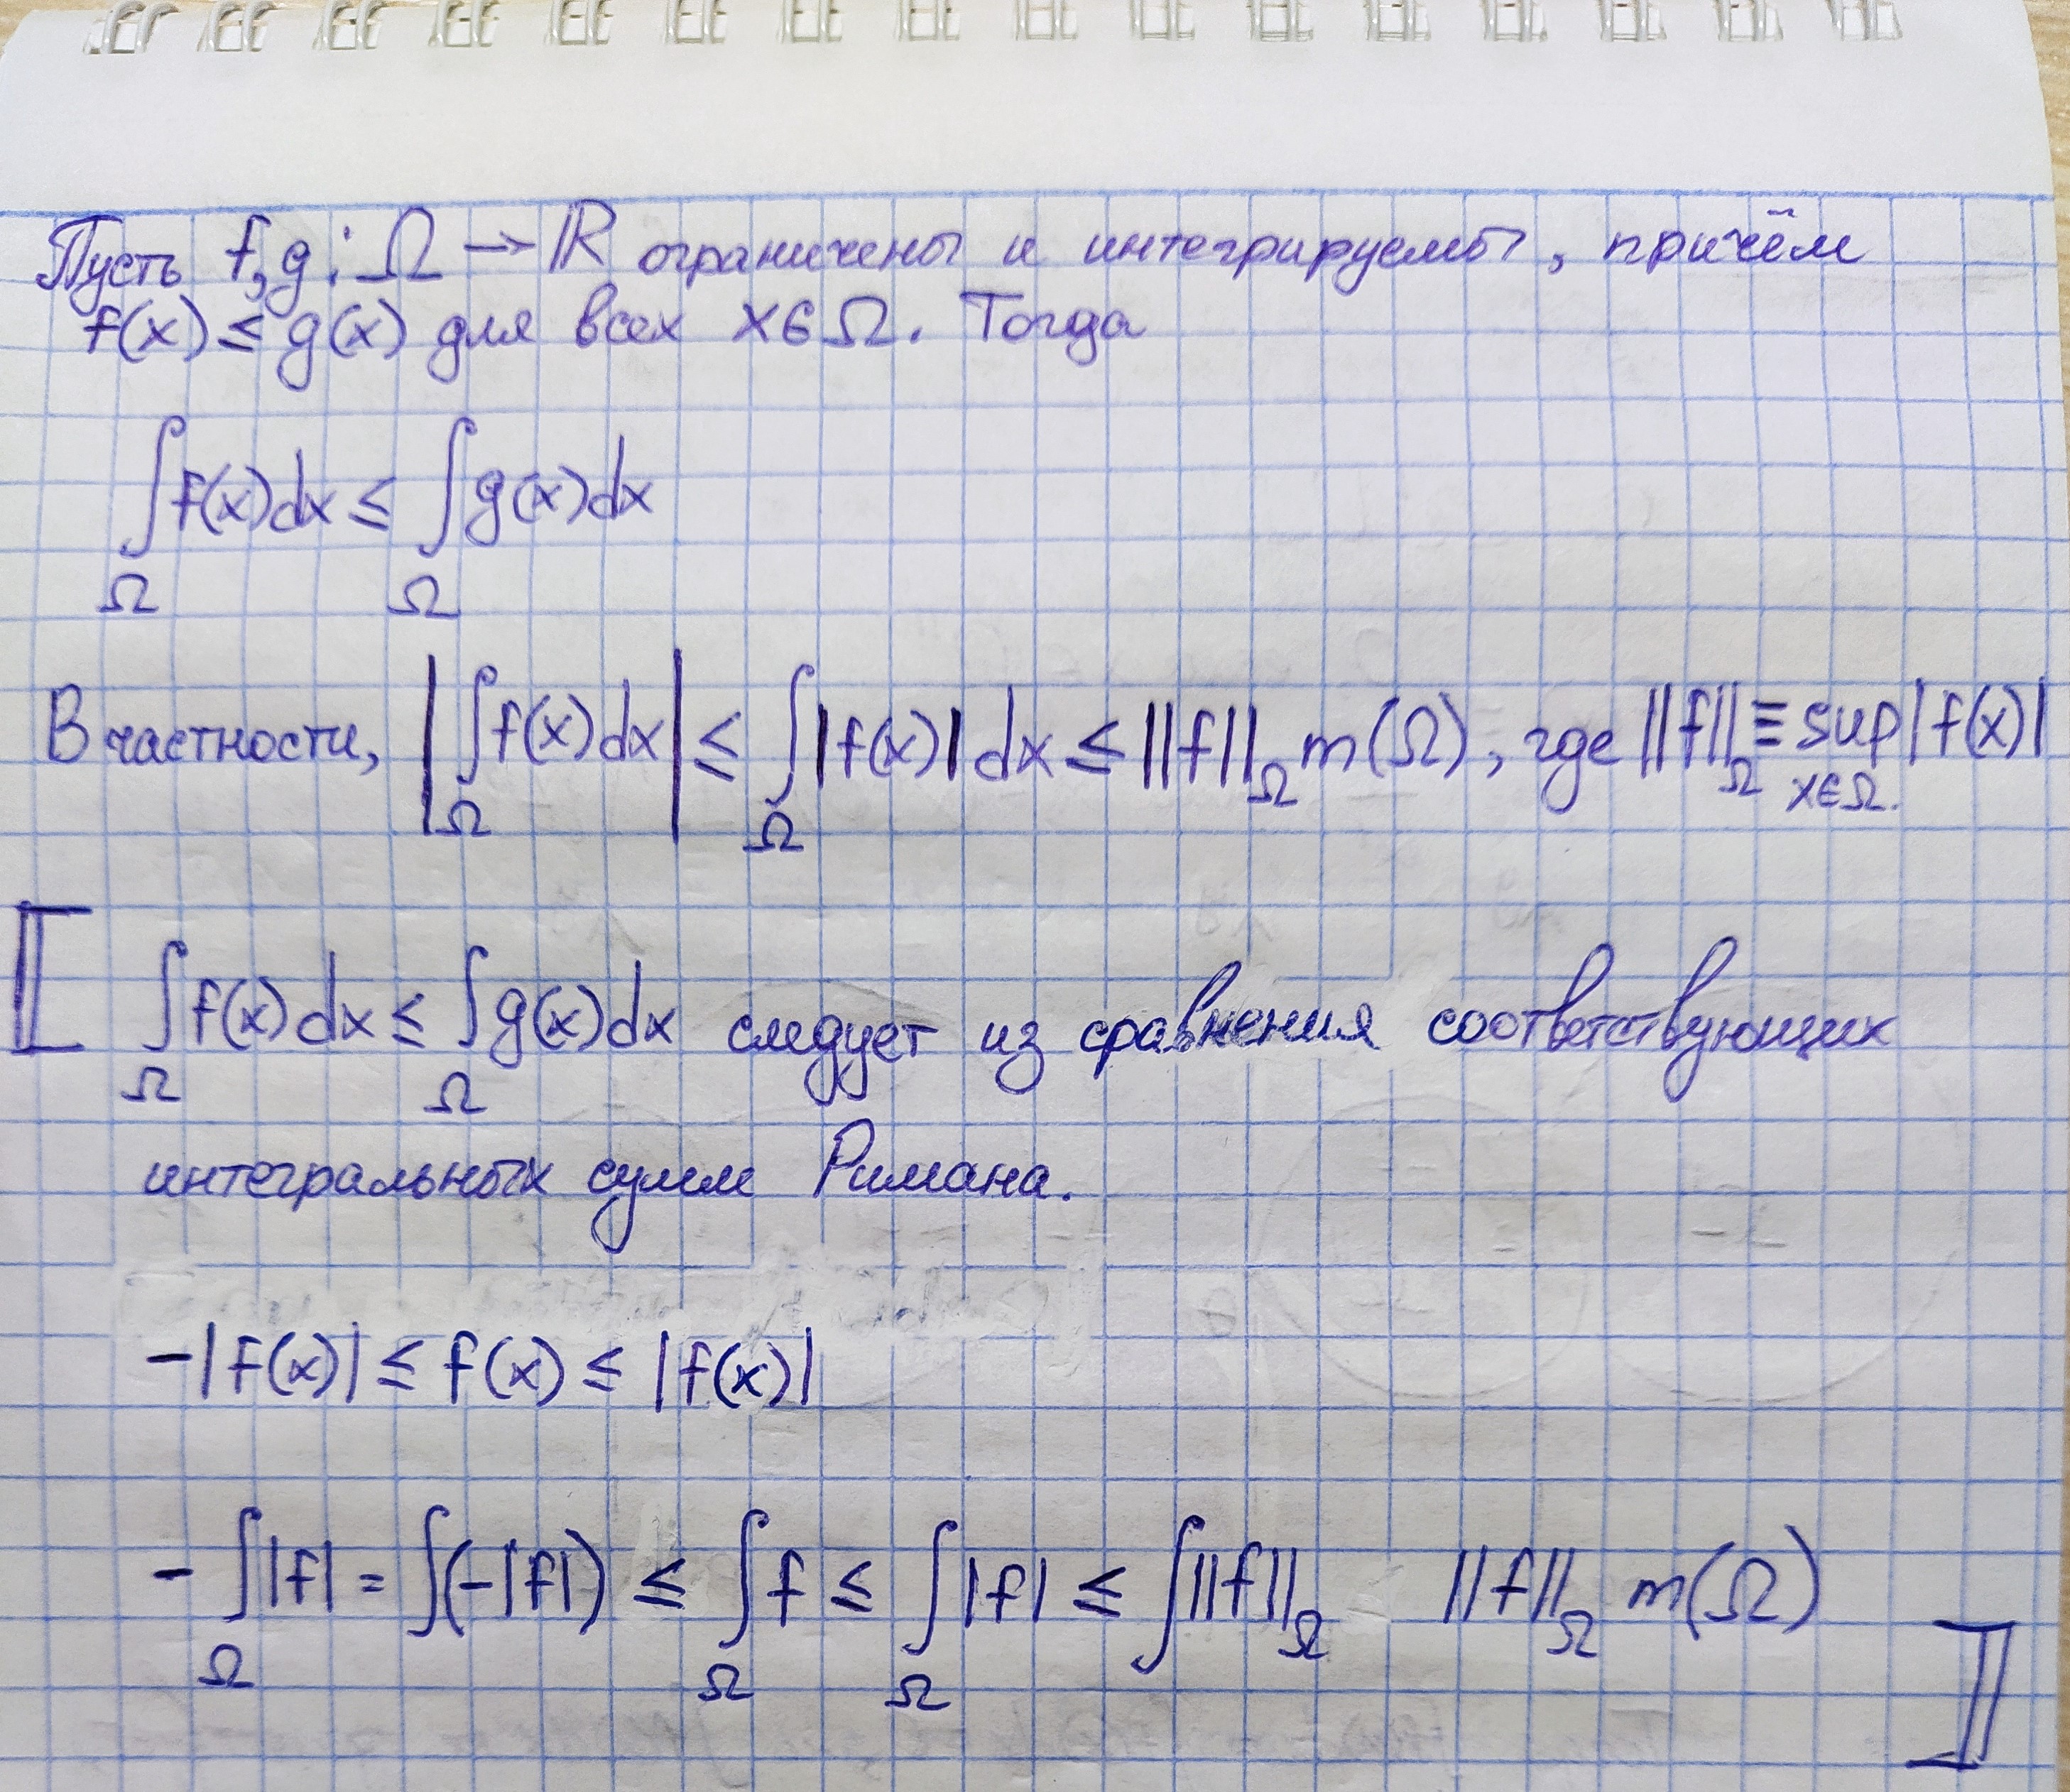 Пусть f, g : Ω → ℝ ограничены и интегрируемы, причём
f(x) ≤ g(x) для всех x ∈ Ω. Тогда
∫_Ω f(x)dx ≤ ∫_Ω g(x)dx
В частности, |∫_Ω f(x)dx| ≤ ∫_Ω |f(x)| dx ≤ ||f||_Ω m(Ω), где ||f||_Ω ≡ sup_{x∈Ω.} |f(x)|
⟦ ∫_Ω f(x)dx ≤ ∫_Ω g(x)dx следует из сравнения соответствующих
интегральных сумм Римана.
-|f(x)| ≤ f(x) ≤ |f(x)|
- ∫_Ω |f| = ∫(-|f|) ≤ ∫_Ω f ≤ ∫_Ω |f| ≤ ∫||f||_Ω ||f||_Ω m(Ω) ⟧